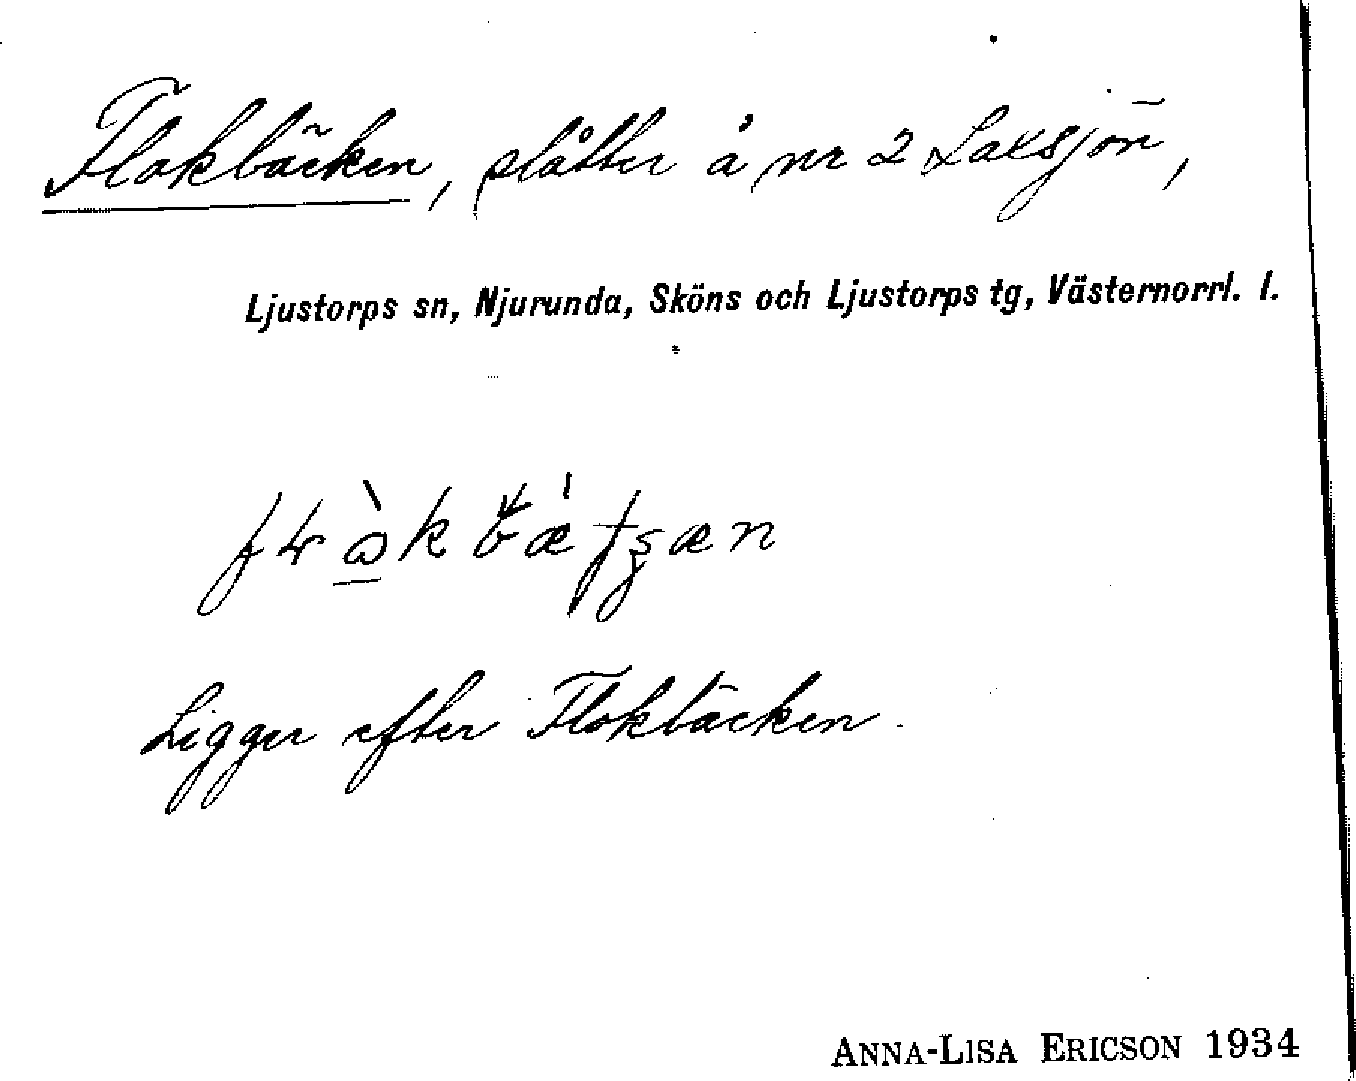 Flokbäcken, slåtter å nr 2 Laxsjön,
Ljustorps sn, Njurunda, Sköns och Ljustorps tg, Västernorrl. l.
Ligger efter Flokbäcken.
ANNA-LISA ERICSON 1934